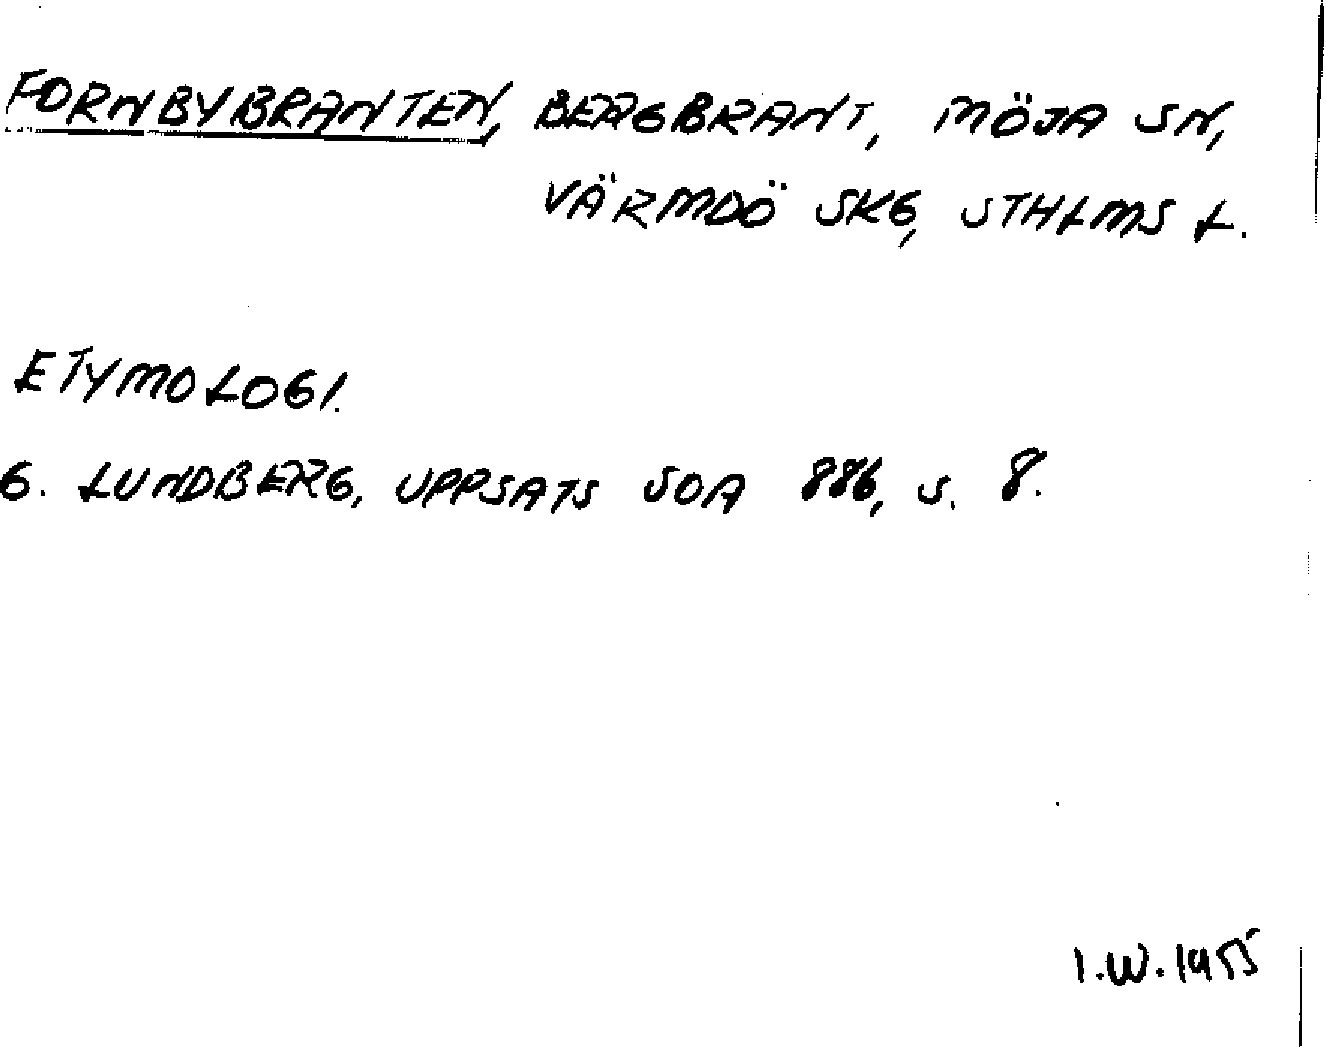 FORNBYBRANTEN, BERGBRANT, MÖJA SN,
VÄRMDÖ SKG, STHLMS L.
ETYMOLOGI.
G. LUNDBERG, UPPSATS SOA 886, S. 8.
I.W. 1955